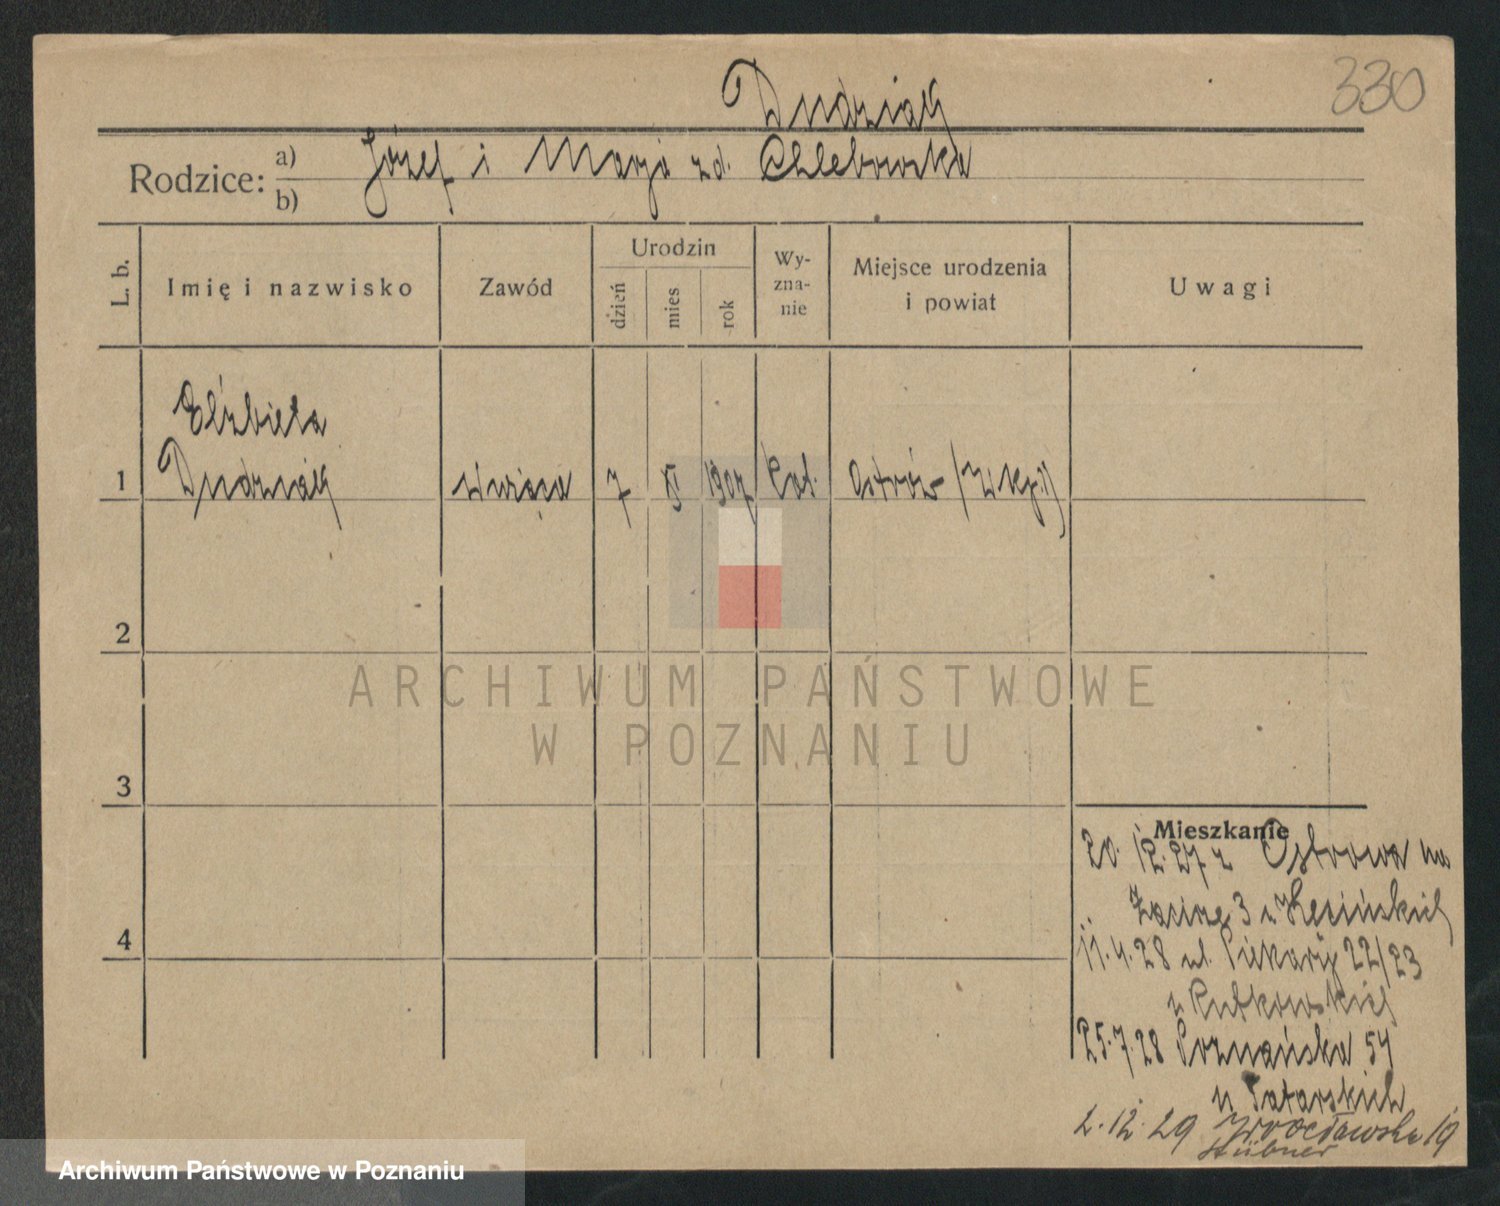 330
Dudziak
Rodzice: a) Józef i Marja zd. Chlebowska
b)
L. b.
Imię i nazwisko
Zawód
Urodzin
dzień
mies
rok
Wy-
zna-
nie
Miejsce urodzenia
i powiat
Uwagi
Elżbieta
1 Dudziak służąca 7 XI 1907 kat. Ostrów (Wlkp.)
2
3
4
ARCHIWUM PAŃSTWOWE
W POZNANIU
Mieszkanie
20. 12. 27 z Ostrowa na
3 u Kęsińskich
11. 4. 28 ul. Piekary 22/23
u Rutkowskich
25. 7. 28 Poznańska 54
u Tatarskich
2. 12. 29 Wrocławska 19
Hübner
Archiwum Państwowe w Poznaniu